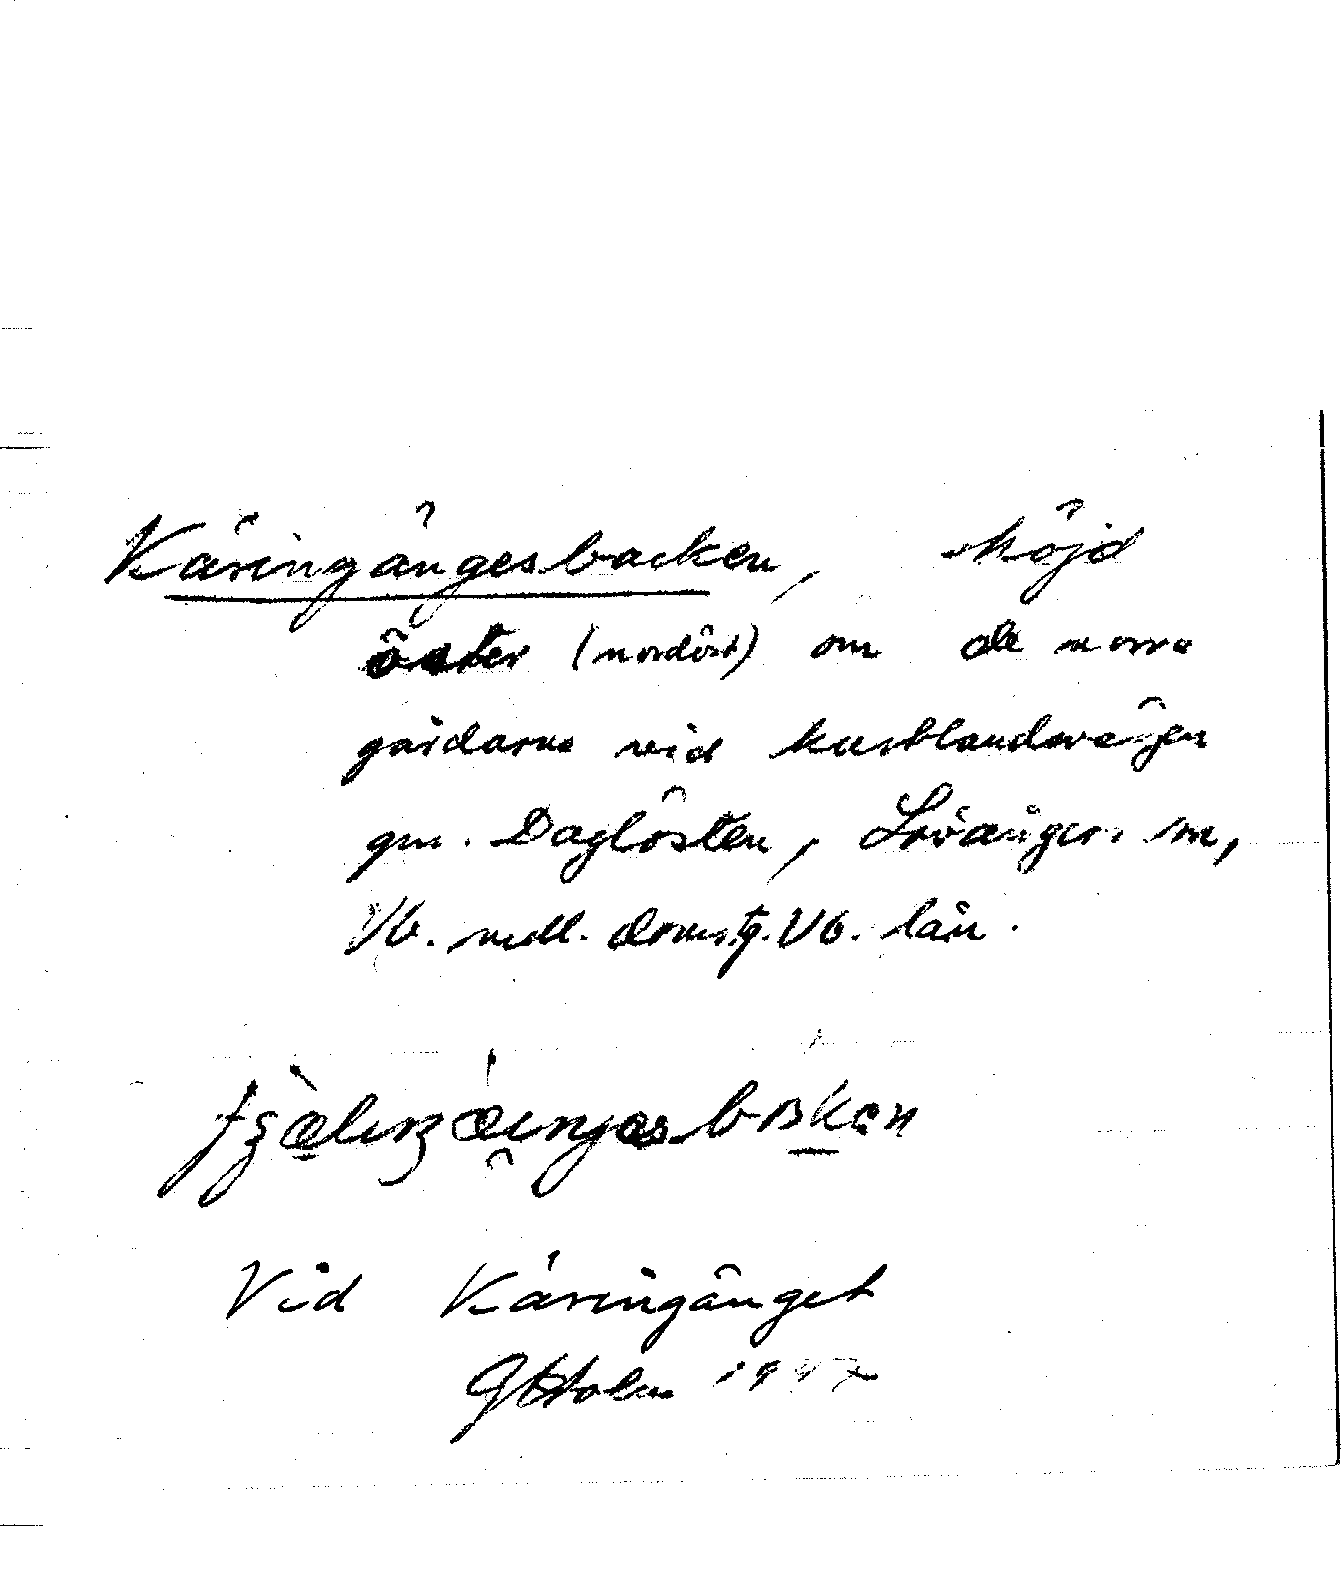 Käringängesbacken, höjd
öster (nordöst) om de norra
gårdarna vid kustlandsvägen
gm. Daglösten, Lövångers sn,
Vb. mell. doms.tg. Vb. län.
Vid Käringänget
Holm 1947